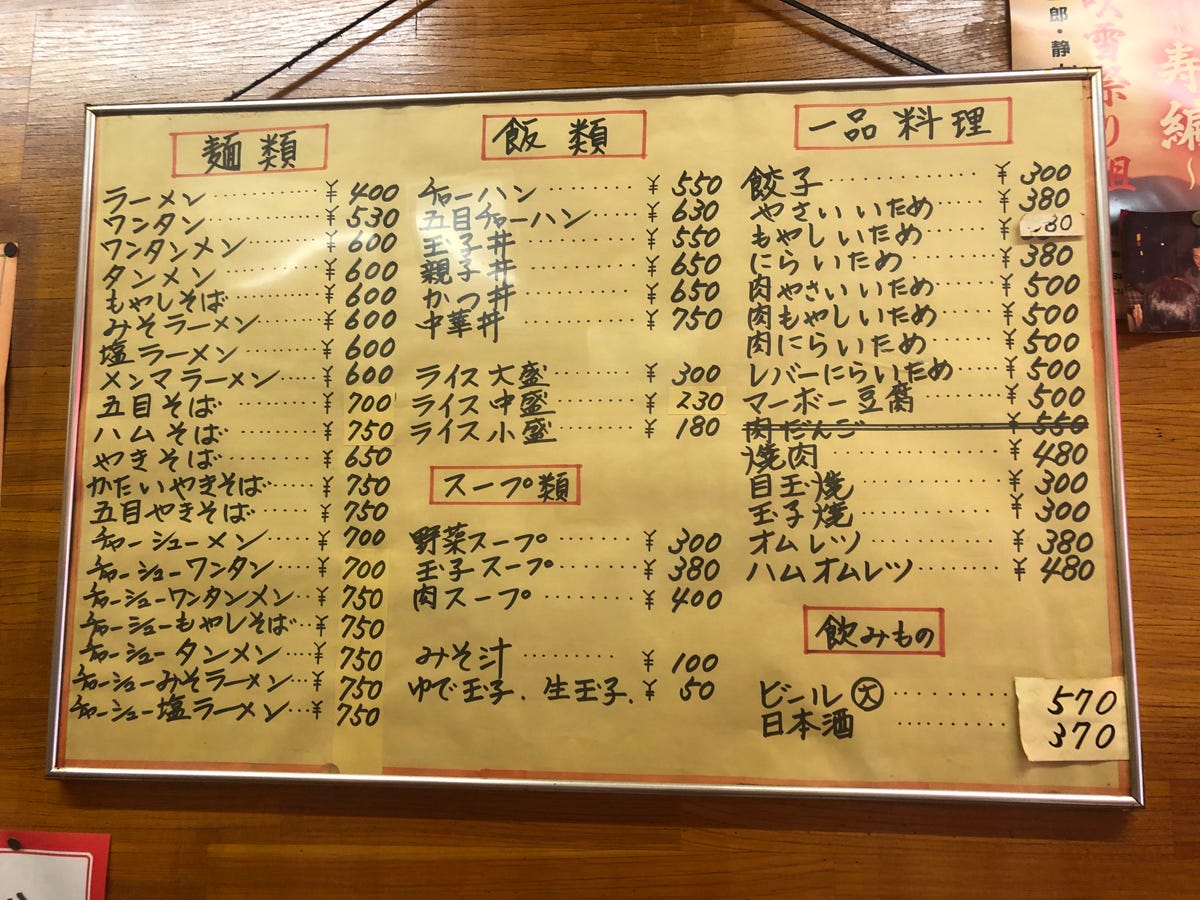 麺類
ラーメン ¥400
ワンタン ¥530
ワンタンメン ¥600
タンメン ¥600
もやしそば ¥600
みそラーメン ¥600
塩ラーメン ¥600
メンマラーメン ¥600
五目そば ¥700
ハムそば ¥750
やきそば ¥650
かたいやきそば ¥750
五目やきそば ¥750
チャーシューメン ¥700
チャーシューワンタン ¥700
チャーシューワンタンメン ¥750
チャーシューもやしそば ¥750
チャーシュータンメン ¥750
チャーシューみそラーメン ¥750
チャーシュー塩ラーメン ¥750
飯類
チャーハン ¥550
五目チャーハン ¥630
玉子丼 ¥550
親子丼 ¥650
かつ丼 ¥650
中華丼 ¥750
ライス大盛 ¥300
ライス中盛 ¥230
ライス小盛 ¥180
スープ類
野菜スープ ¥300
玉子スープ ¥380
肉スープ ¥400
みそ汁 ¥100
ゆで玉子、生玉子、 ¥50
一品料理
餃子 ¥300
やさいいため ¥380
もやしいため ¥380
にらいため ¥380
肉やさいいため ¥500
肉もやしいため ¥500
肉にらいため ¥500
レバーにらいため ¥500
マーボー豆腐 ¥500
肉だんご ¥550
焼肉 ¥480
目玉焼 ¥300
玉子焼 ¥300
オムレツ ¥380
ハムオムレツ ¥480
飲みもの
ビール 大 570
日本酒 370
郎・静
寿編〜